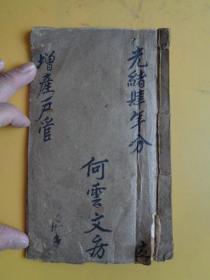 光緒肆年分
何雲文易
增產戶管